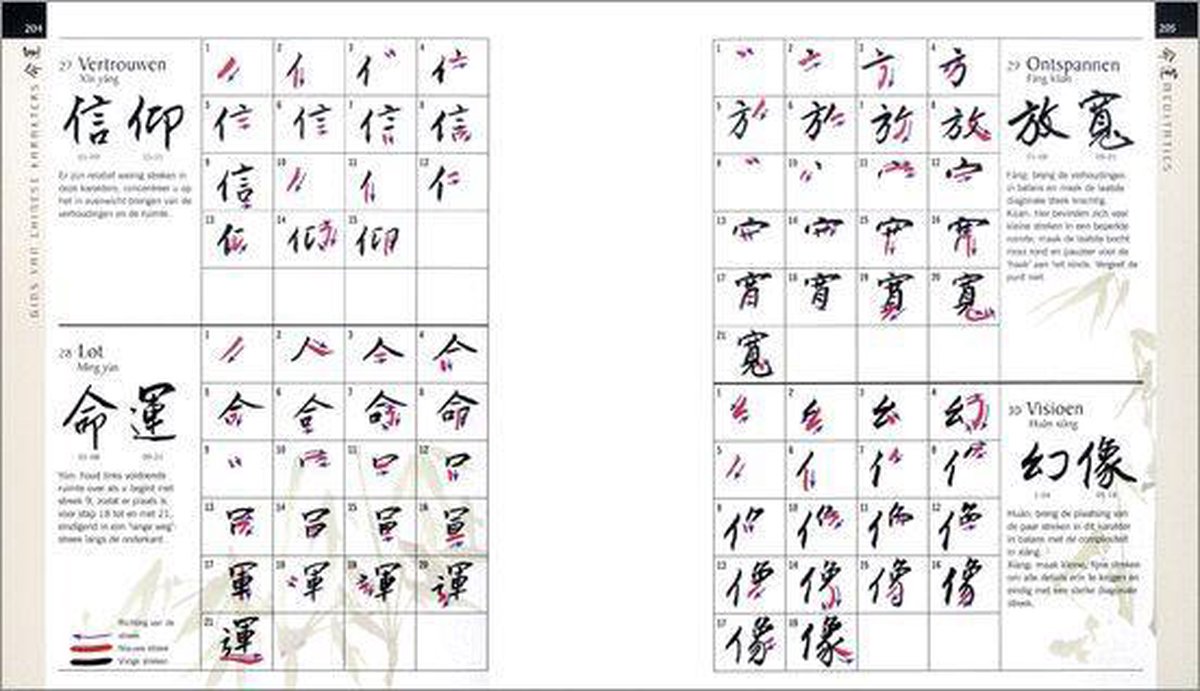 204
GIDS VAN CHINESE KARAKTERS
27 Vertrouwen
Xìn yǎng
信仰
01-09 10-15
Er zijn relatief weinig streken in
deze karakters, concentreer u op
het in evenwicht brengen van de
verhoudingen en de ruimte.
1 2 3 4
5 6 7 8
9 10 11 12
13 14 15
28 Lot
Mìng yùn
命運
01-08 09-21
Yùn: houd links voldoende
ruimte over als u begint met
streek 9, zodat er plaats is
voor stap 18 tot en met 21,
eindigend in een 'lange weg'-
streek langs de onderkant.
1 2 3 4
5 6 7 8
9 10 11 12
13 14 15 16
17 18 19 20
21
Richting van de
streek
Nieuwe streek
Vorige streken
205
MEDITATIES
29 Ontspannen
Fàng kuān
放寬
01-08 09-21
Fàng: breng de verhoudingen
in balans en maak de laatste
diagonale streek krachtig.
Kuan: hier bevinden zich veel
kleine streken in een beperkte
ruimte; maak de laatste bocht
mooi rond en pauzeer voor de
'haak' aan het einde. Vergeet de
punt niet.
1 2 3 4
5 6 7 8
9 10 11 12
13 14 15 16
17 18 19 20
21
30 Visioen
Huàn xiàng
幻像
1-04 05-18
Huàn: breng de plaatsing van
de paar streken in dit karakter
in balans met de complexiteit
in xiàng.
Xiàng: maak kleine, fijne streken
om alle details erin te krijgen en
eindig met een sterke diagonale
streek.
1 2 3 4
5 6 7 8
9 10 11 12
13 14 15 16
17 18